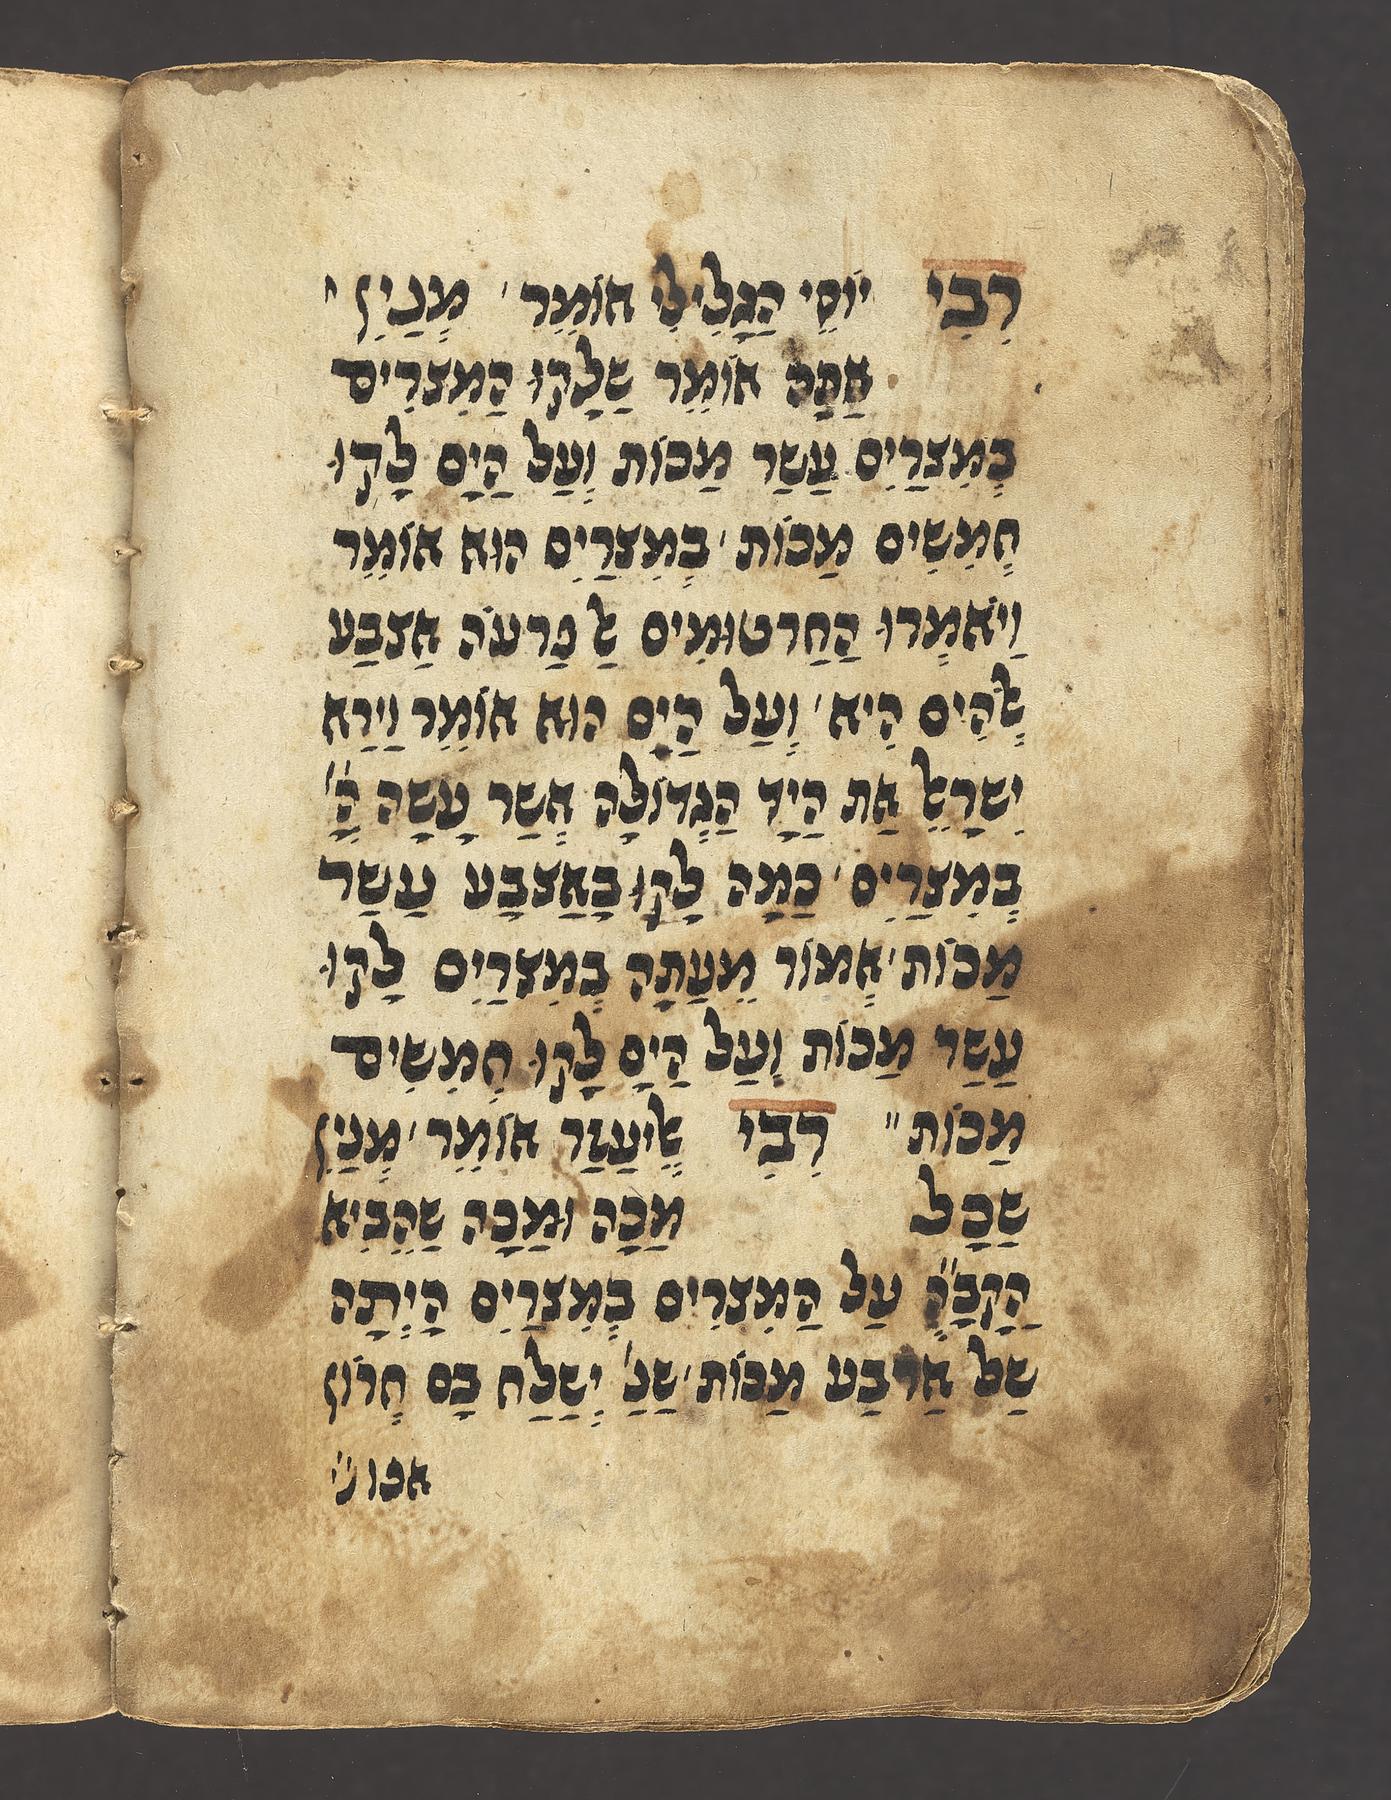 רִבִי יוֹסֵי הַגָלִילִי אוֹמֵר׳ מְנַיִן י
אַתָה אוֹמֵר שַלָקוּ הַמִצרִיִם
בְמִצרַיִם עַשַר מַכוֹת וְעַל הַיָם לָקוּ
חְמִשִים מַכוֹת׳ בְמִצרַיִם הוּא אוֹמֵר
וַיֹאמְרוּ הַחַרטוּמִים אַל פַרעֹה אַצבַע
אְלֹהִים הִיא׳ וְעַל הַיָם הוּא אוֹמֵר וַיַרא
יִשרָאֵל אַת הַיָד הַגְדוֹלָה אְשַר עָשָה הָ׳׳
בְמִצרַיִם׳ כַמָה לָקוּ בָאַצבַע עַשַר
מַכוֹת׳ אְמוֹר מֵעַתָה בְמִצרַיִם לָקוּ
עַשַר מַכוֹת וְעַל הַיָם לָקוּ חְמִשִים
מַכוֹת״ רִבִי אְלִיעַזַר אוֹמֵר׳ מְנַיִן
שַכָל מַכָה וּמַכָה שַהֵבִיא
הַקָבָ״הְ עַל הַמִצרִים בְמִצרַיִם הָיְתָה
שַל אַרבַע מַכוֹת׳ שַנַ׳ יְשַלַח בָם חְרוֹן
אפו ע׳׳